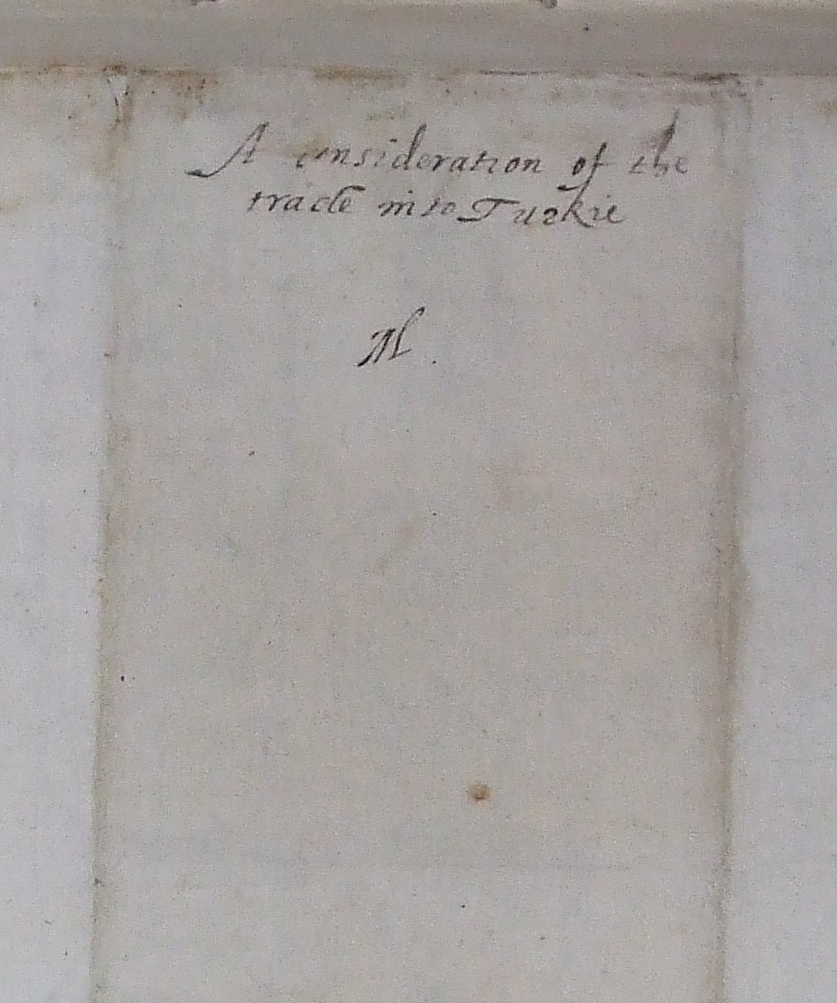 A consideration of the
trade into Turkie
M.